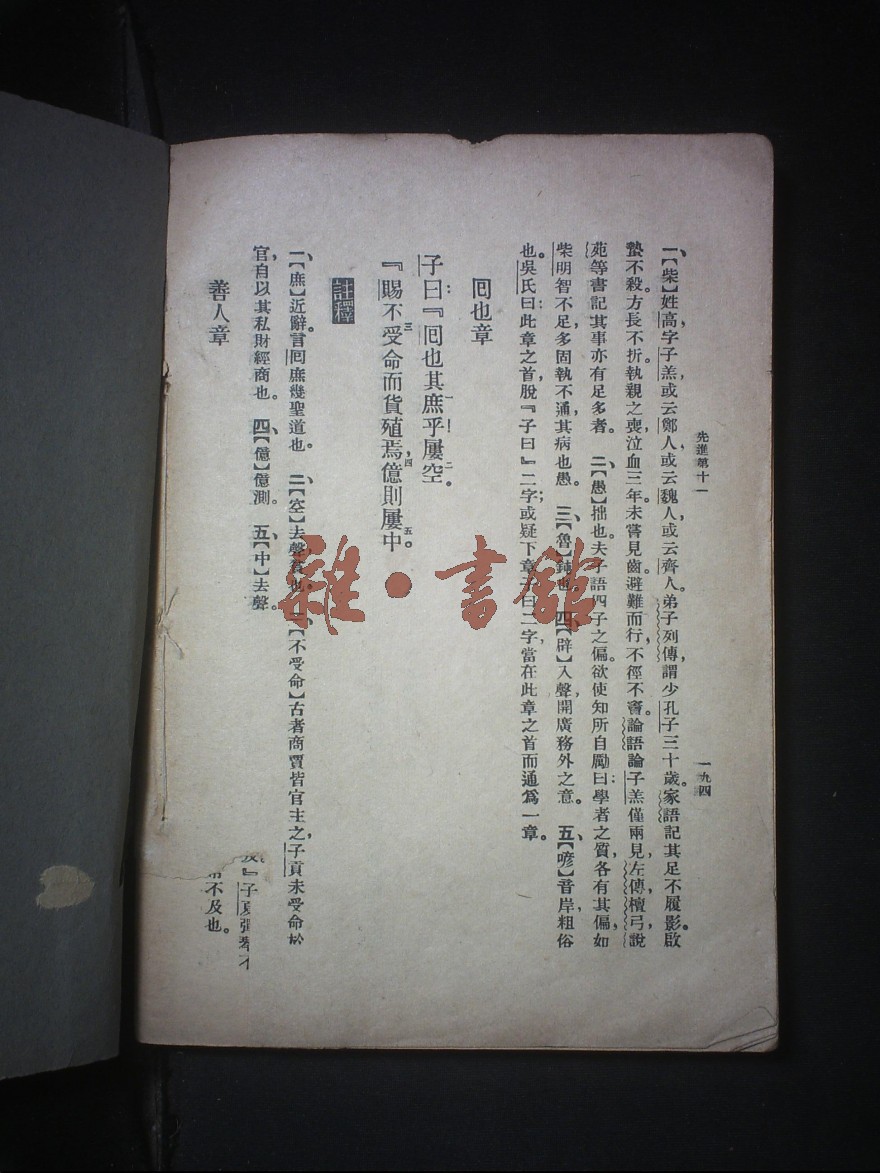 先進第十一
一九四
一、【柴】姓高，字子羔，或云鄭人，或云魏人，或云齊人。弟子列傳，謂少孔子三十歲。家語記其足不履影，啟
蟄不殺。方長不折。執親之喪，泣血三年。未嘗見齒。避難而行，不徑不竇。論語論子羔僅兩見，左傳，檀弓，說
苑等書記其事亦有足多者。　二、【愚】拙也。夫子語四子之偏。欲使知所自勵曰：學者之質，各有其偏，如
柴明智不足，多固執不通，其病也愚。　三、【魯】鈍也。　四、【辟】入聲，開廣務外之意。　五、【喭】音岸，粗俗
也。吳氏曰：此章之首，脫『子曰』二字；或疑下章子曰二字，當在此章之首，而通爲一章。
回也章
子曰：『回也其庶乎！屢空。
一二
『賜不受命，而貨殖焉，億則屢中。
三四五
註釋
一、【庶】近辭，言回庶幾聖道也。　二、【空】去聲，貧也。　三、【不受命】古者商賈皆官主之，子貢未受命於
官，自以其私財經商也。　四、【億】億測。　五、【中】去聲。
善人章
』子夏
不及也。
雜·書館